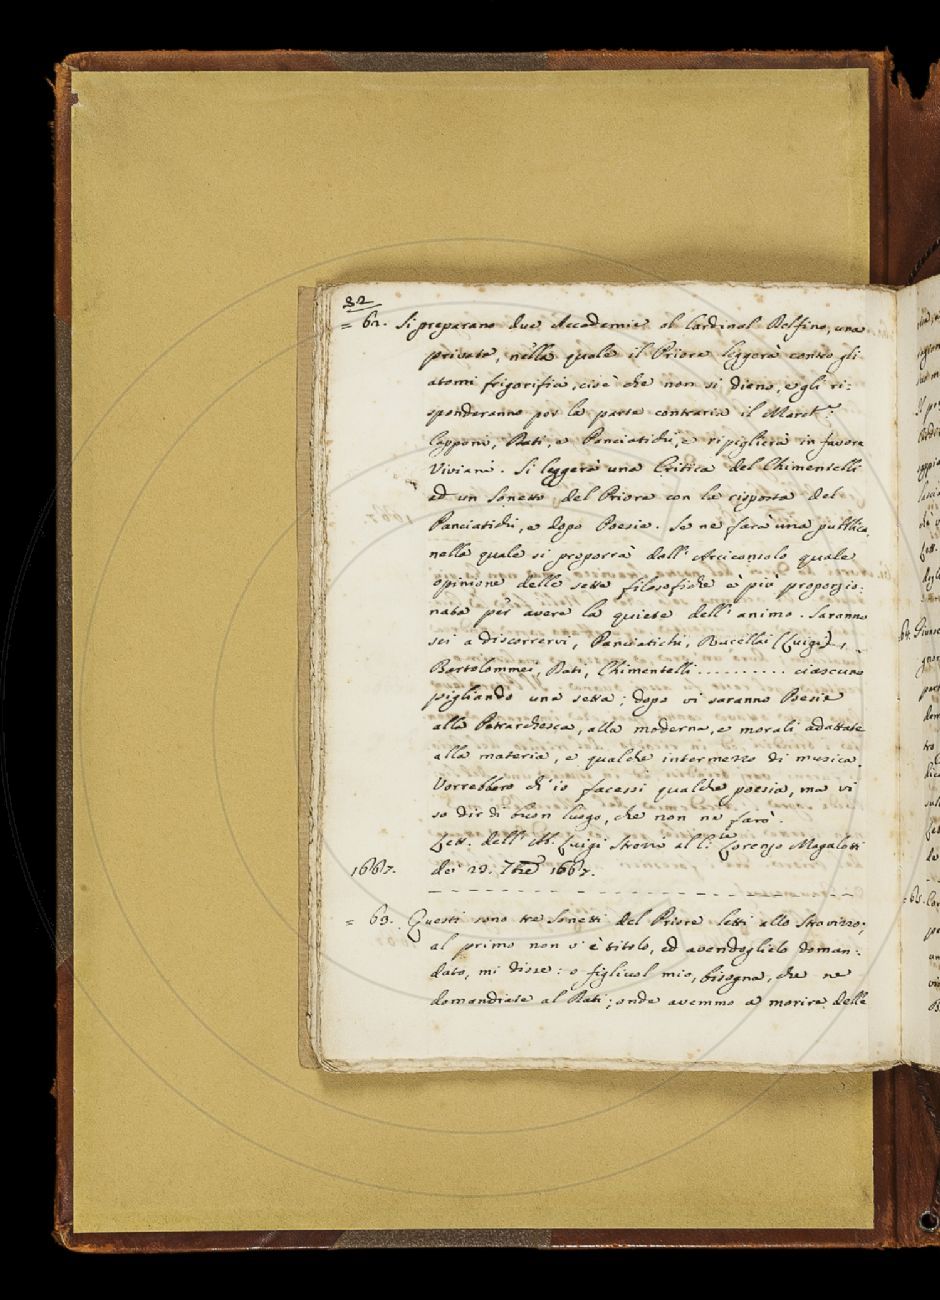 32
= 62. Si preparano due Accademie al Cardinal Delfino, una
privata, nella quale il Priore leggerà contro gli
atomi frigorifici, cioè che non si diano, e gli ri:
sponderanno per la parte contraria il March.e
Capponi, Rati, e Panciatichi, e ripiglierà in favore
Viviani. Si leggerà una Critica del Chimentelli
ad un Sonetto del Priore con la risposta del
Panciatichi, e dopo Poesie. Se ne farà una pubblica,
nella quale si proporrà dall' Arciconsolo quale
opinione delle sette filosofiche è più proporzio:
nata per avere la quiete dell' animo. Saranno
sei a discorrervi, Panciatichi, Rucellai (Luigi),
Bartolommei, Rati, Chimentelli .......... ciascuno
pigliando una setta; dopo vi saranno Poesie
alla Petrarchesca, alla moderna, e morali adattate
alla materia, e qualche intermezzo di musica.
Vorrebbero ch' io facessi qualche poesia, ma vi
so dir di buon luogo, che non ne farò.
Lett. dell' Ab. Luigi Strozzi al C.te Lorenzo Magalotti
1667. dei 29. 7bre 1667.
= 63. Questi sono tre Sonetti del Priore letti allo Stravizzo;
al primo non v' è titolo, ed avendoglielo doman:
dato, mi disse: o figliuol mio, bisogna, che ne
domandiate al Rati; onde avemmo a morire delle